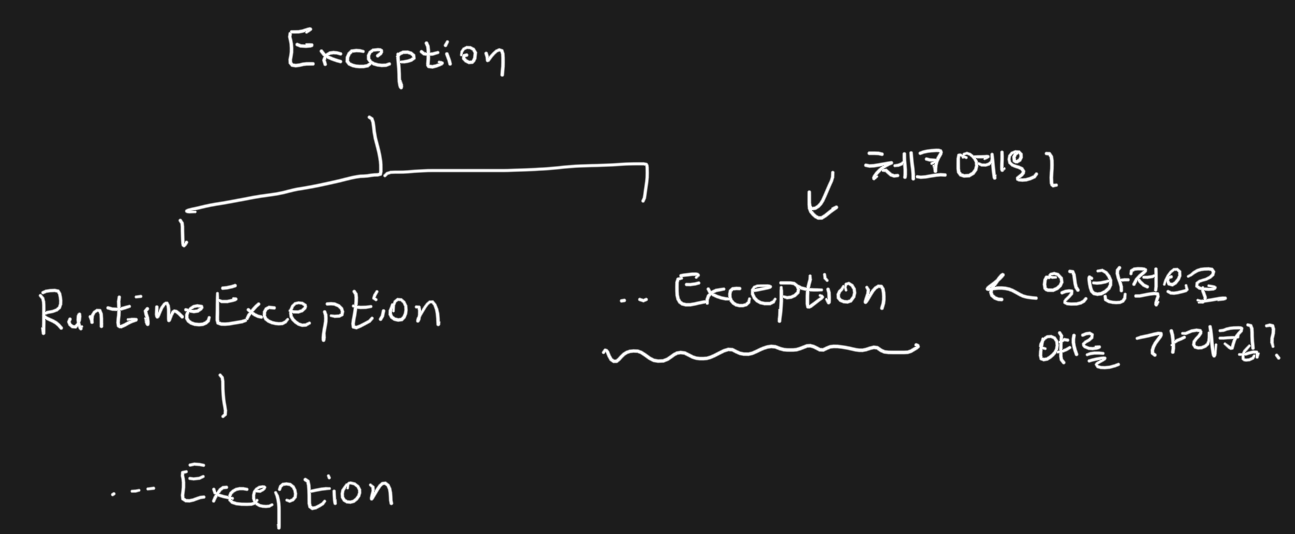 Exception
체크예외
RuntimeException
.. Exception
← 일반적으로
얘를 가리킴?
... Exception